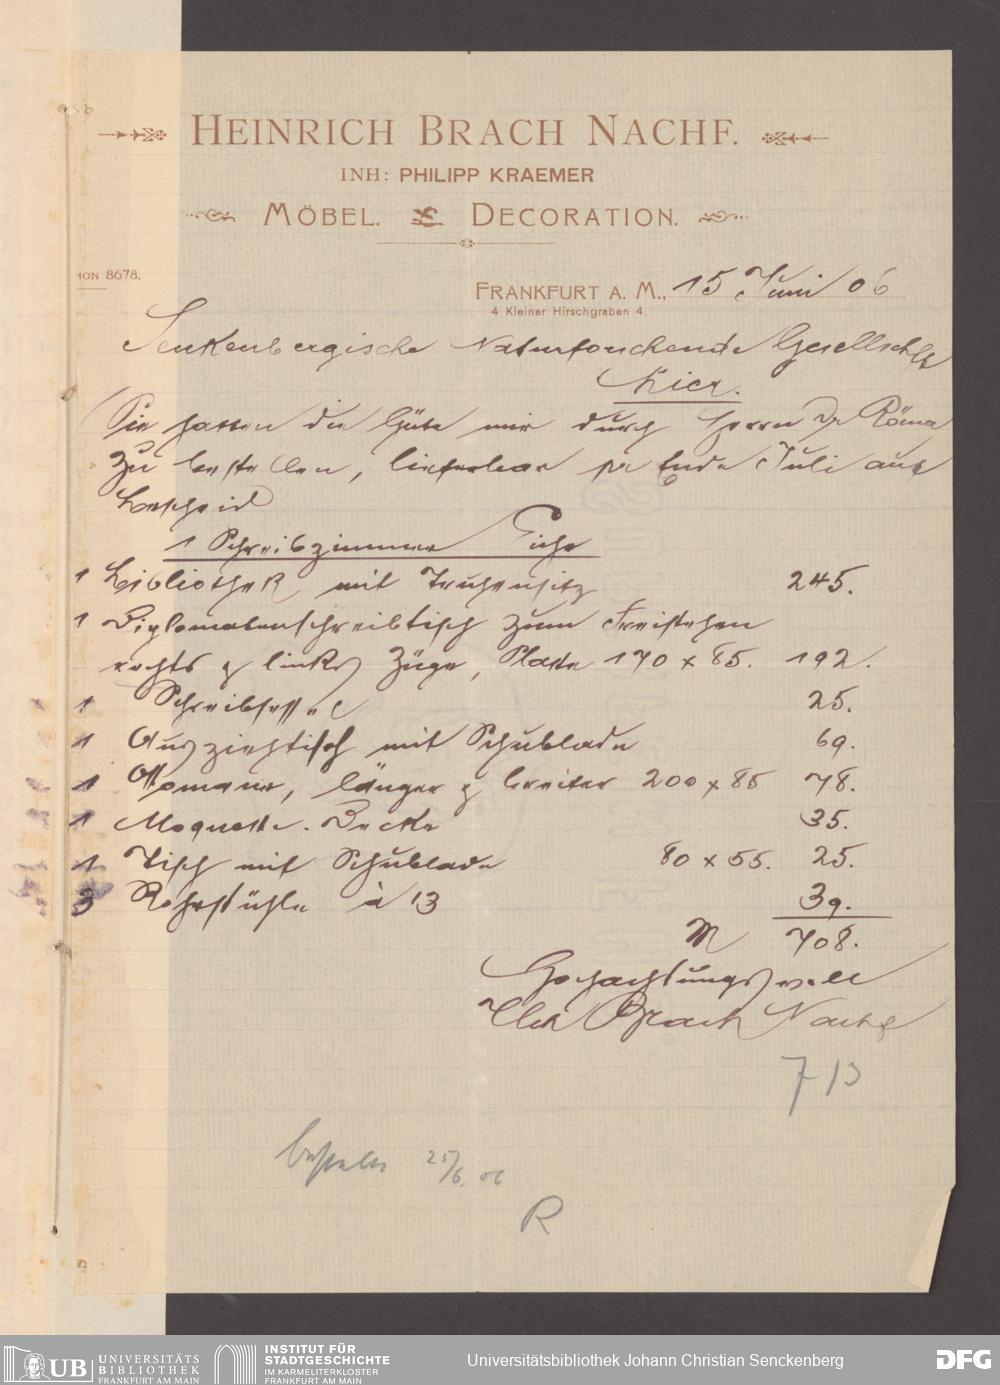 HEINRICH BRACH NACHF.
INH: PHILIPP KRAEMER
MÖBEL. & DECORATION.
ION 8678.
FRANKFURT A. M., 15 Juni 06
4 Kleiner Hirschgraben 4.
Senkenbergische Naturforschende Gesellschft
Hier.
Sie hatten die Güte mir durch Herrn Dr Römer
zu bestellen, lieferbar pr Ende Juli auf
Bescheid
1 Schreibzimmer Eiche
1 Bibliothek mit Truhensitz 245.
1 Diplomatenschreibtisch zum Freistehen
rechts & links Züge, Platte 170 x 85. 192.
1 Schreibsessel 25.
1 Ausziehtisch mit Schublade 69.
1 Ottomane, länger & breiter 200 x 85 78.
1 Moquette-Decke 35.
1 Tisch mit Schublade 80 x 55. 25.
3 Rohrstühle à 13 39.
M 708.
Hochachtungsvoll
Hch Brach Nachf
713
bestellt 25/6. 06
R
UB UNIVERSITÄTS
BIBLIOTHEK
FRANKFURT AM MAIN
INSTITUT FÜR
STADTGESCHICHTE
IM KARMELITERKLOSTER
FRANKFURT AM MAIN
Universitätsbibliothek Johann Christian Senckenberg
DFG